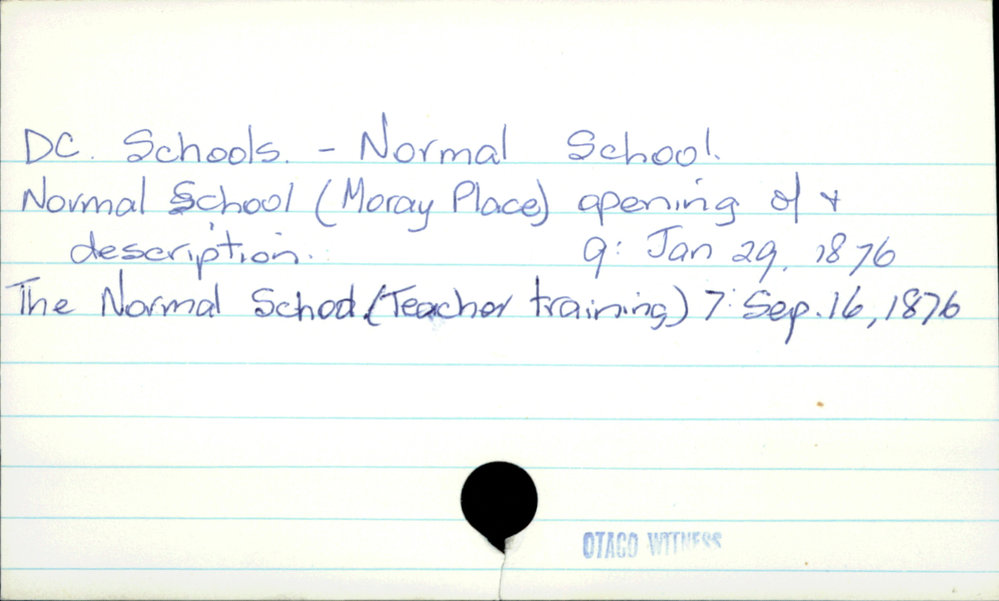 DC. Schools. - Normal School.
Normal School (Moray Place) opening of &
description. 9: Jan 29, 1876
The Normal School (Teacher training) 7: Sep. 16, 1876
OTAGO WITNESS